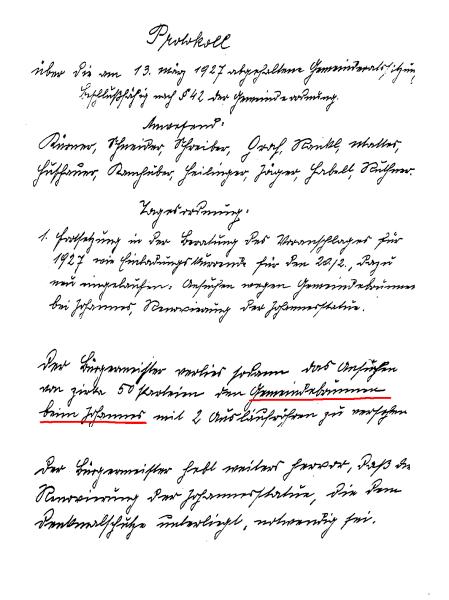 Protokoll
über die am 13. März 1927 abgehaltene Gemeinderatssitzung
Beschlußfähig nach § 42 der Gemeindeordnung.
Anwesend:
Kürner, Schneider, Schreiber, Graf, Mattes,
Hufhauer, Heilinger, Jäger, Habelt,
Tagesordnung:
1. Fortsetzung in der Beratung des Voranschlages für
1927 wie Einladungskurrende für den 20./2., dazu
neu eingelaufen: Ansuchen wegen Gemeindebrunnen
bei Johannes, Renovierung der Johannesstatue.
Der Bürgermeister verlies sodann das Ansuchen
von zirka 50 Parteien den Gemeindebrunnen
beim Johannes mit 2 Auslaufröhren zu versehen
Der Bürgermeister hebt weiters hervor, daß die
Renovierung der Johannesstatue, die dem
Denkmalschutze unterliegt, notwendig sei.